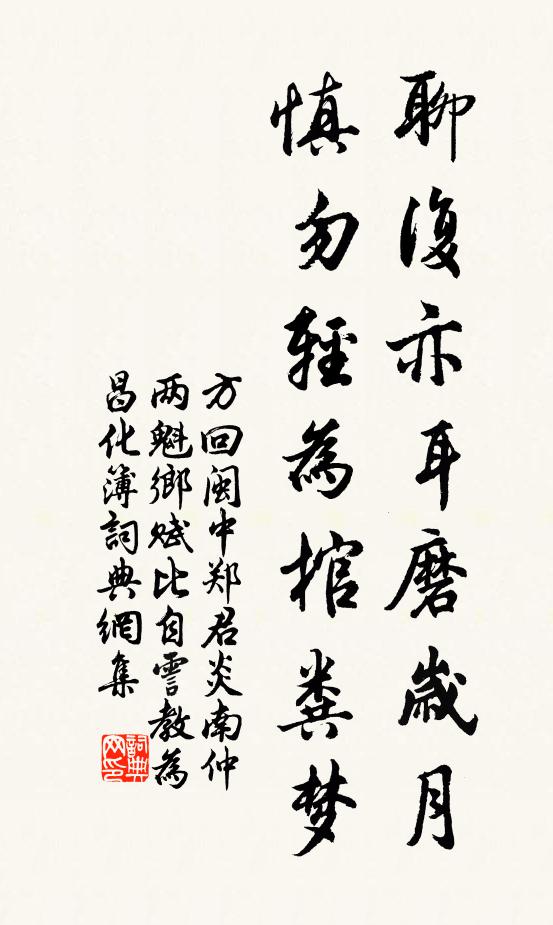 聊復亦耳磨歲月
慎勿輕為棺糞梦
方回閩中郑君炎南仲
两魁鄉赋比自雪教為
昌化簿詞典網集
詞典网印